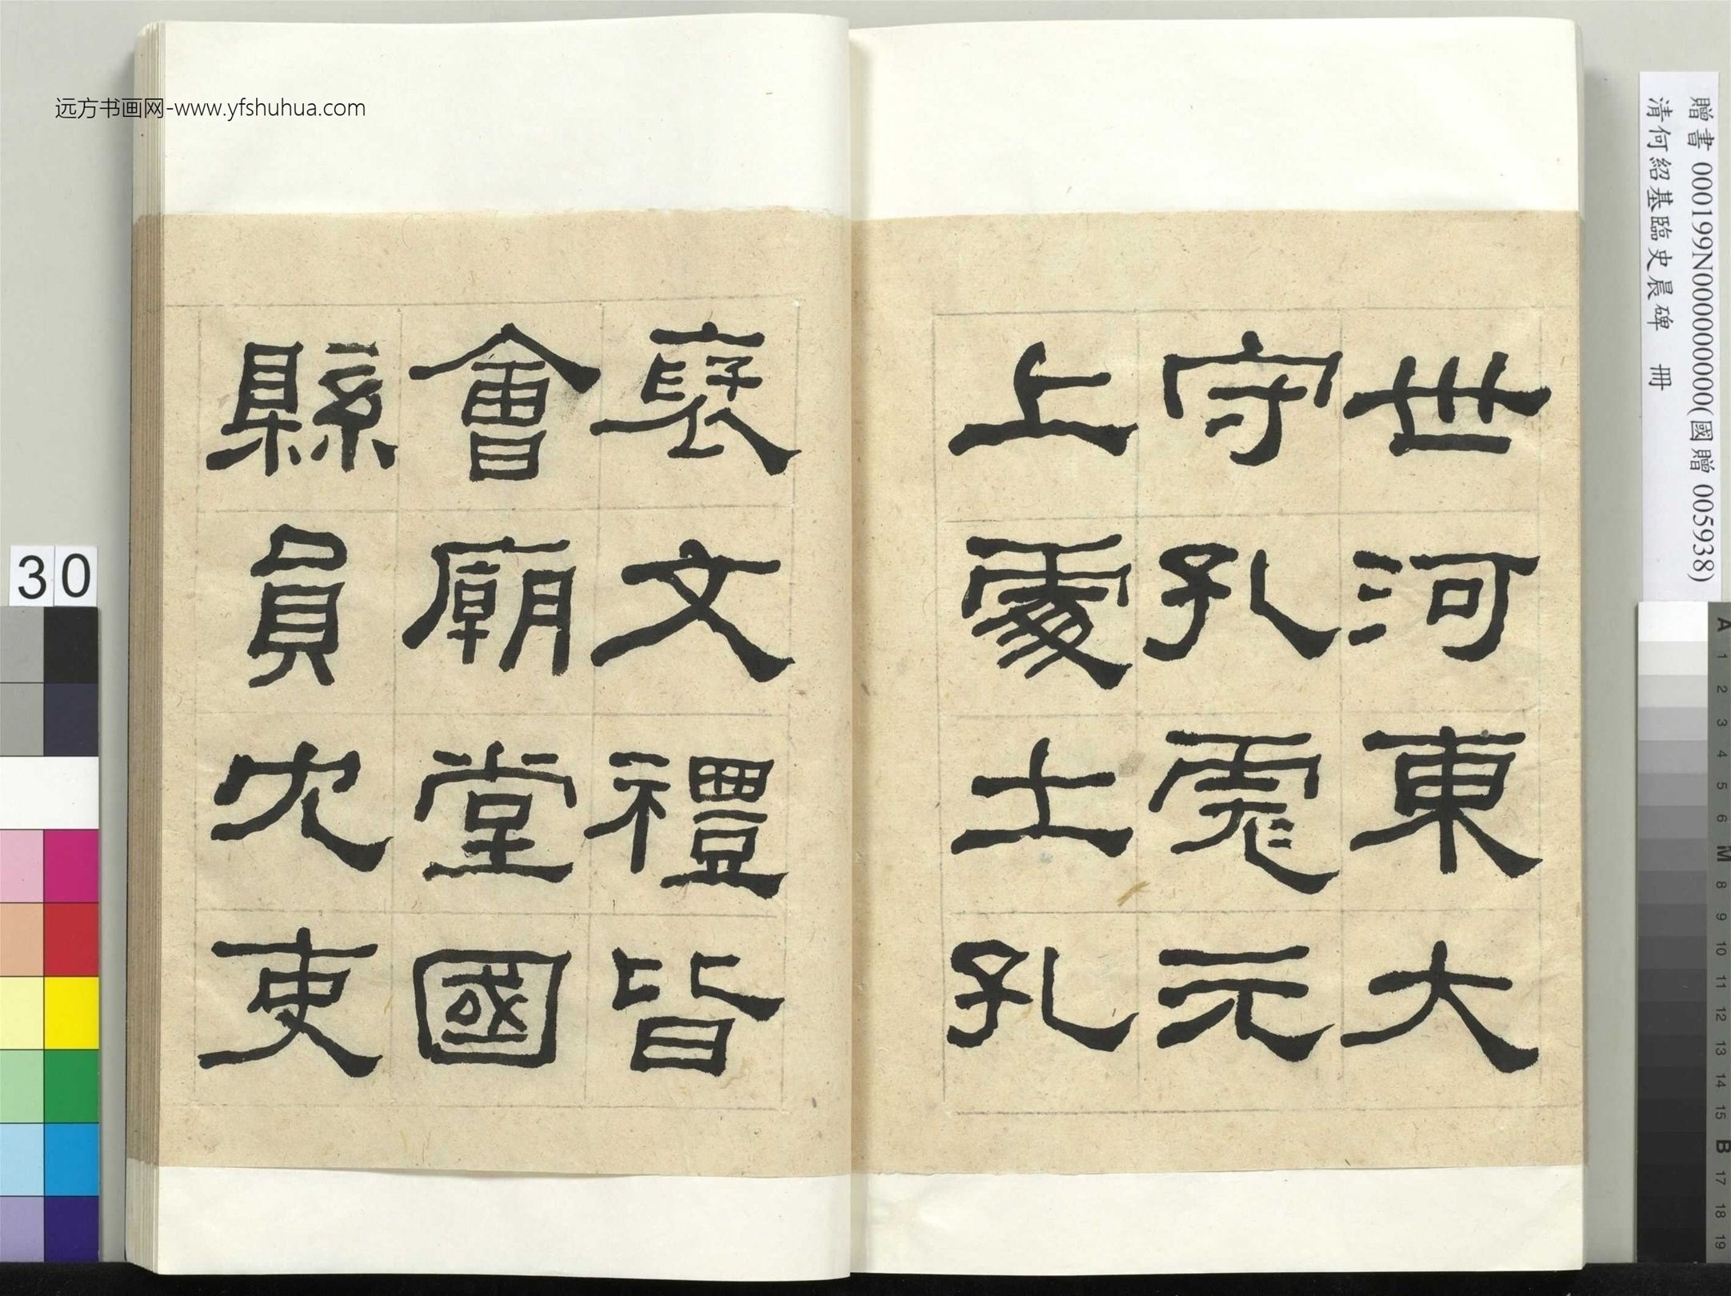 远方书画网-www.yfshuhua.com
贈書 000199N000000000(國贈 005938)
清何紹基臨史晨碑 冊
世河東大
守孔彪元
上處士孔
褒文禮皆
會廟堂國
縣員冗吏
30
A
1
2
3
4
5
6
M
8
9
10
11
12
13
14
15
B
17
18
19